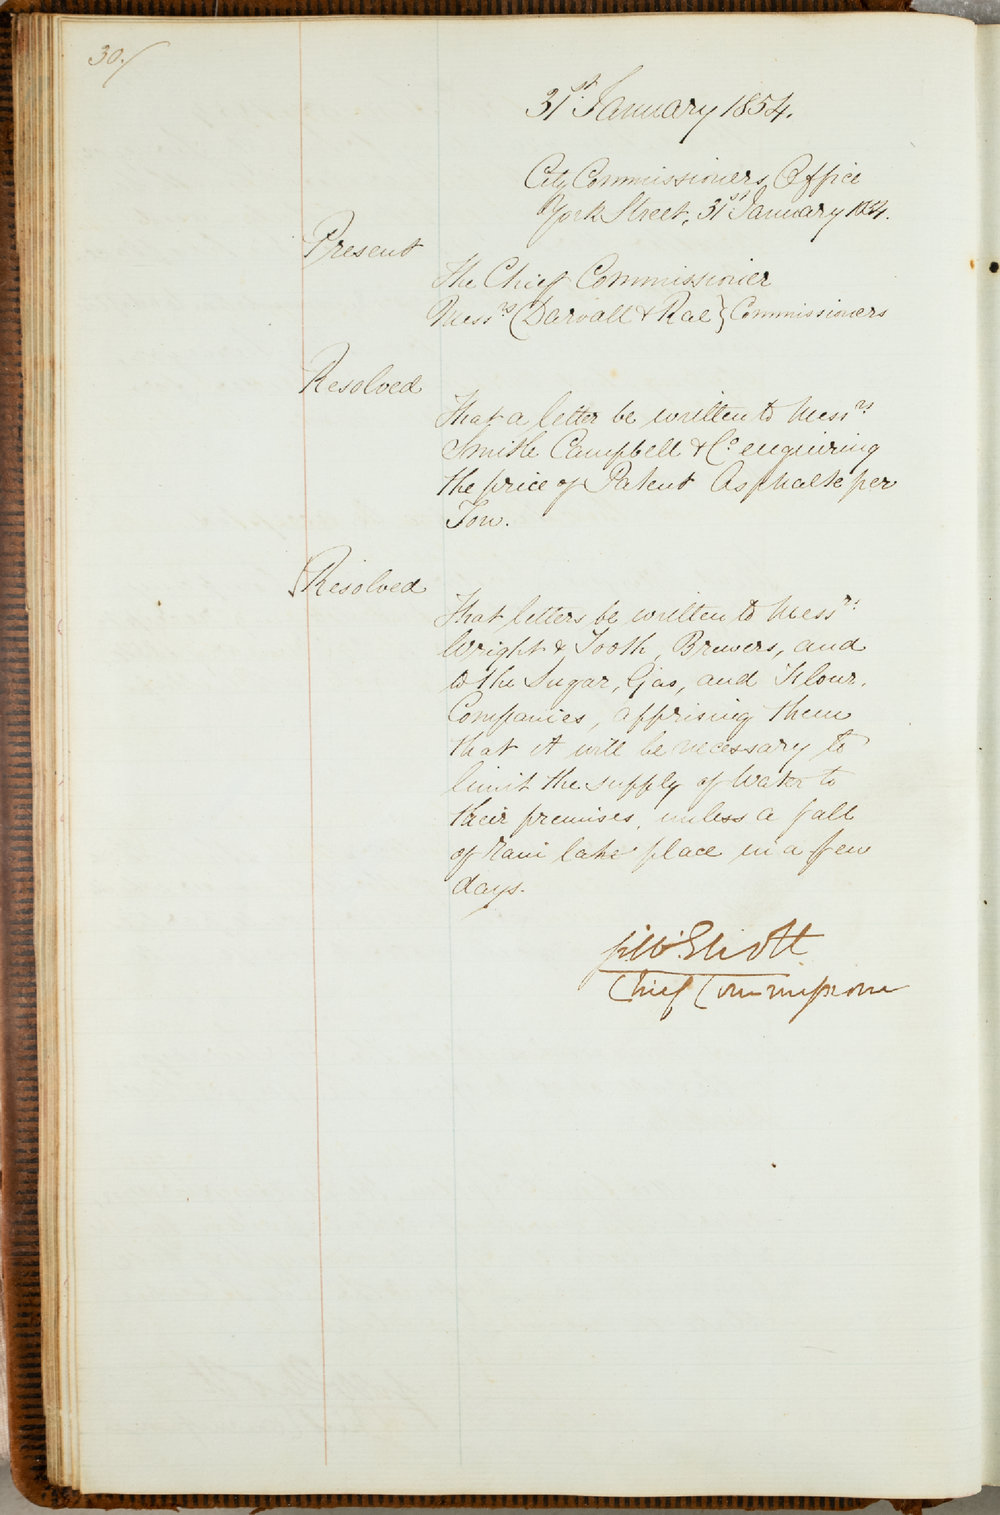 30./
31st January 1854.
City Commissioners Office
York Street, 31st January 1854.
Present
The Chief Commissioner
Messrs (Darvall & Rae} Commissioners
Resolved
That a letter be written to Messrs
Smith Campbell & Co. enquiring
the price of Patent Asphalte per
Ton.
Resolved
That letters be written to Messrs
Wright & Tooth, Brewers, and
to the Sugar, Gas, and Flour,
Companies, apprising them
that it will be necessary to
limit the supply of Water to
their premises, unless a fall
of rain take place in a few
days.
G W Eliott
Chief Commissioner